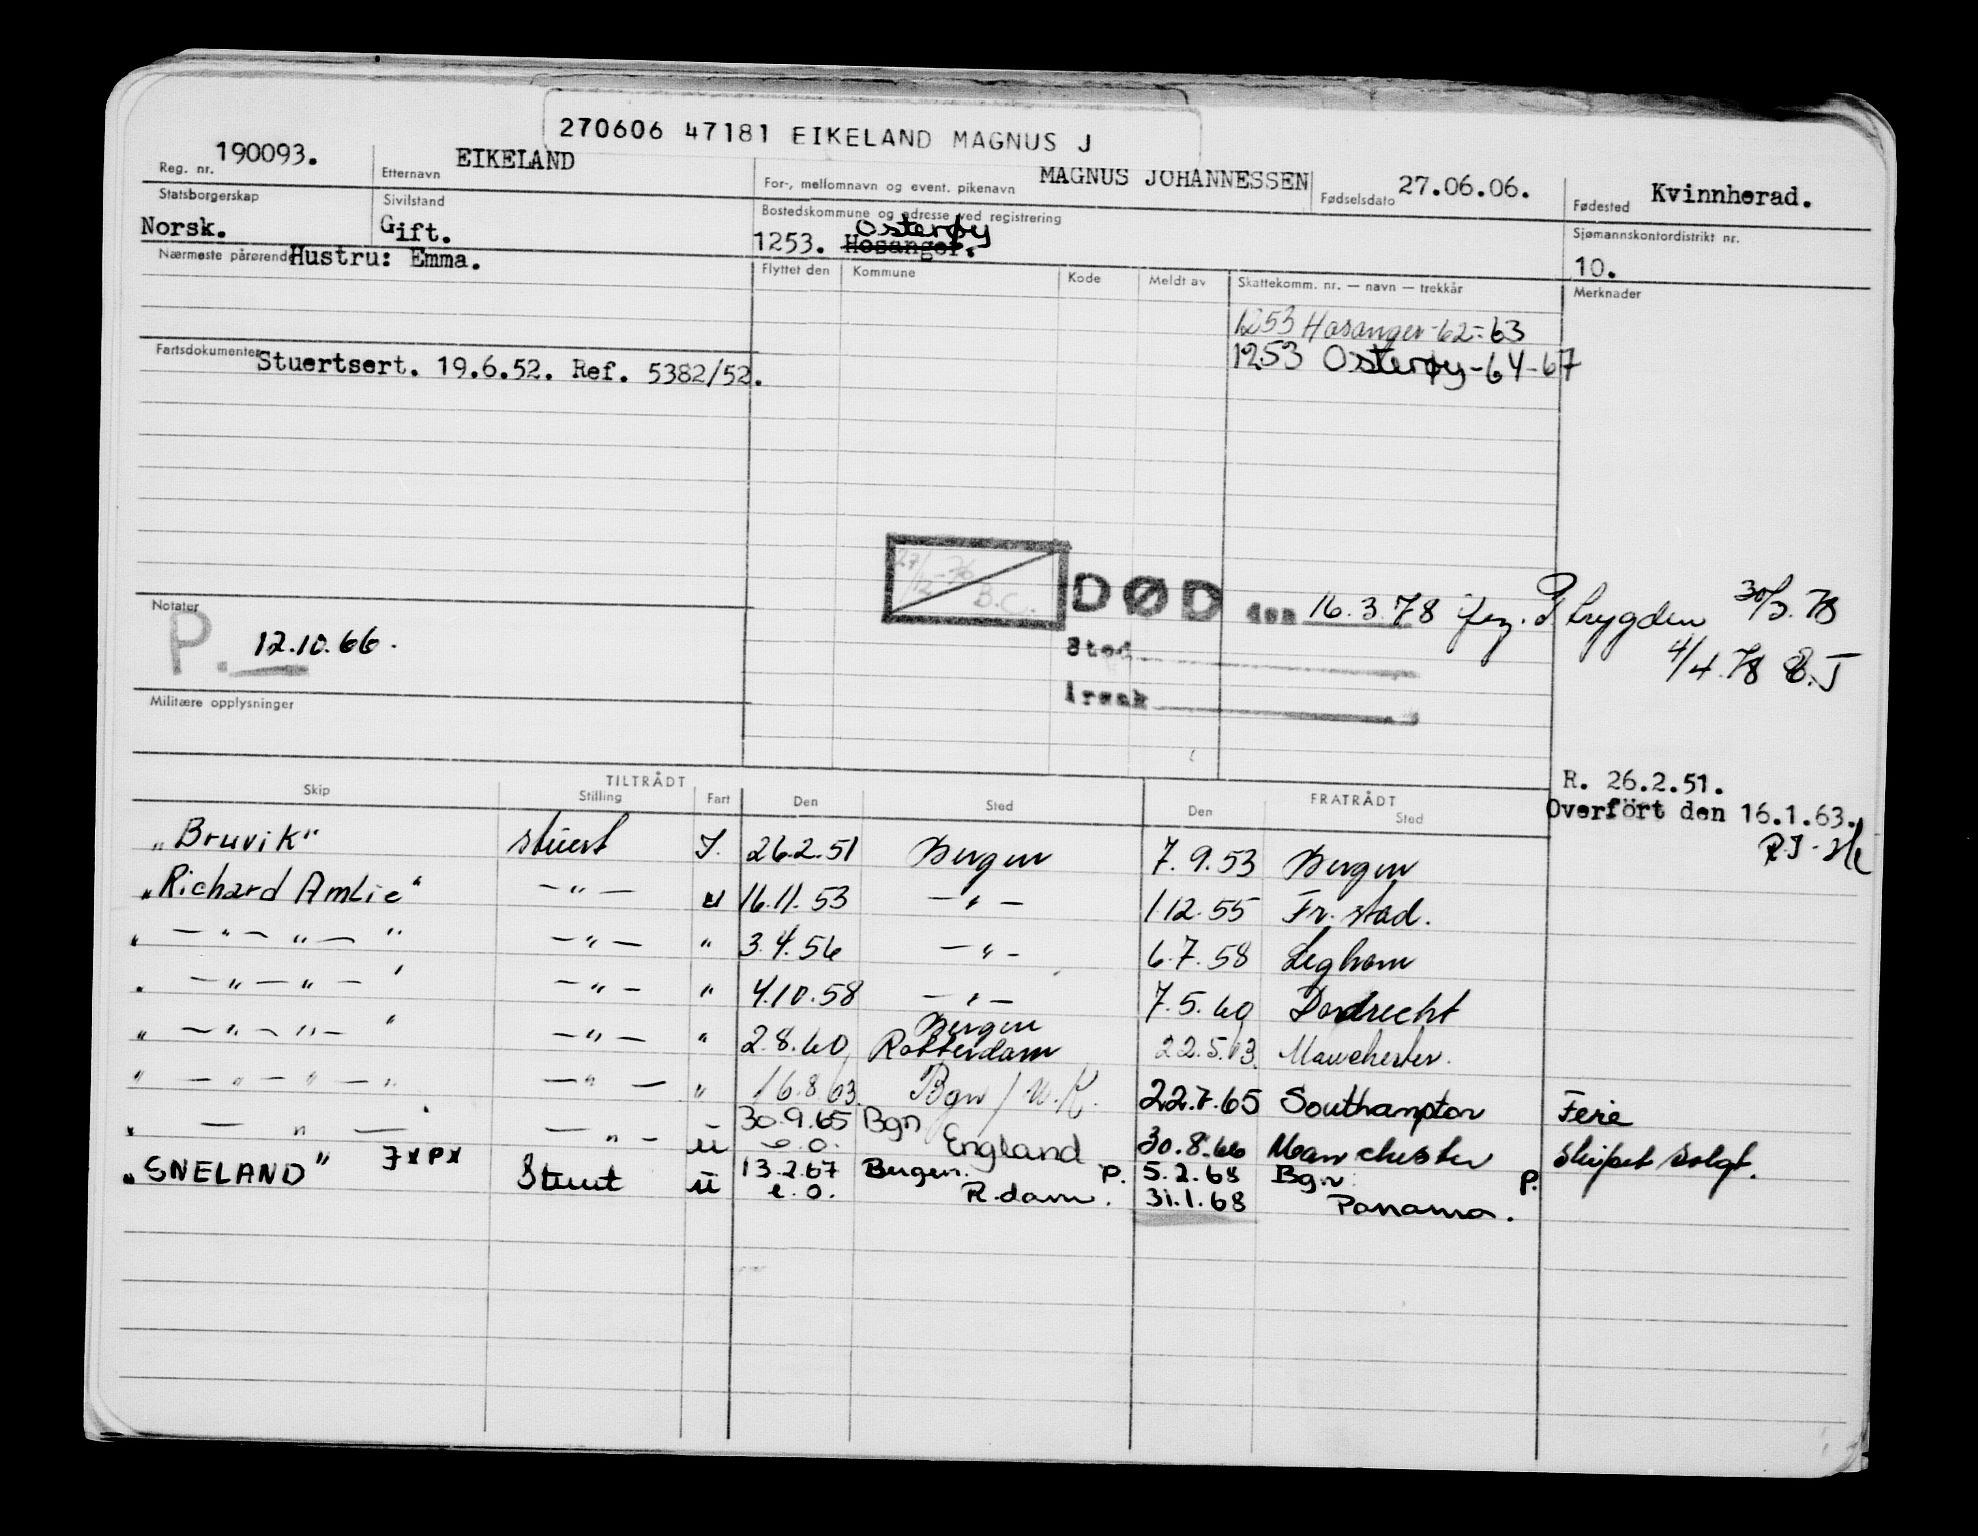 270606 47181 EIKELAND MAGNUS J
Reg. nr. 190093. Etternavn EIKELAND For-, mellomnavn og event. pikenavn MAGNUS JOHANNESSEN Fødselsdato 27.06.06. Fødested Kvinnherad.
Statsborgerskap Norsk. Sivilstand Gift. Bostedskommune og adresse ved registrering 1253. Hosanger. Osterøy Sjømannskontordistrikt nr. 10.
Nærmeste pårørende Hustru: Emma. Flyttet den Kommune Kode Meldt av Skattekomm. nr. — navn — trekkår Merknader
1253 Hosanger -62-63
1253 Osterøy -64-67
Fartsdokumenter Stuertsert. 19.6.52. Ref. 5382/52.
27/12-76 B.C.
DØD den 16.3.78 trygden 30/3.78
4/4.78
Sted
Årsak
Notater
P. 12.10.66.
Militære opplysninger
R. 26.2.51.
Overført den 16.1.63.
TILTRÅDT FRATRÅDT
Skip Stilling Fart Den Sted Den Sted
"Bruvik" stuert 26.2.51 Bergen 7.9.53 Bergen
"Richard Amlie" —"— u 16.11.53 —"— 1.12.55 Fr.stad.
" —"—"— " —"— " 3.4.56 —"— 6.7.58 Leghorn
" —"—"— " —"— " 4.10.58 —"— 7.5.60 Dordrecht
" —"—"— " —"— " 2.8.60 Bergen Rotterdam 22.5.63 Manchester.
" —"—"— " —"— " 16.8.63 Bgn / U.K. 22.7.65 Southampton Ferie
" — " — —"— u 30.9.65 Bgn
e.o. England 30.8.66 Manchester Skipet solgt.
"SNELAND" JXPX Stuert u 13.2.67 Bergen. P. 5.2.68 Bgn P.
e.o. R.dam. 31.1.68 Panama.